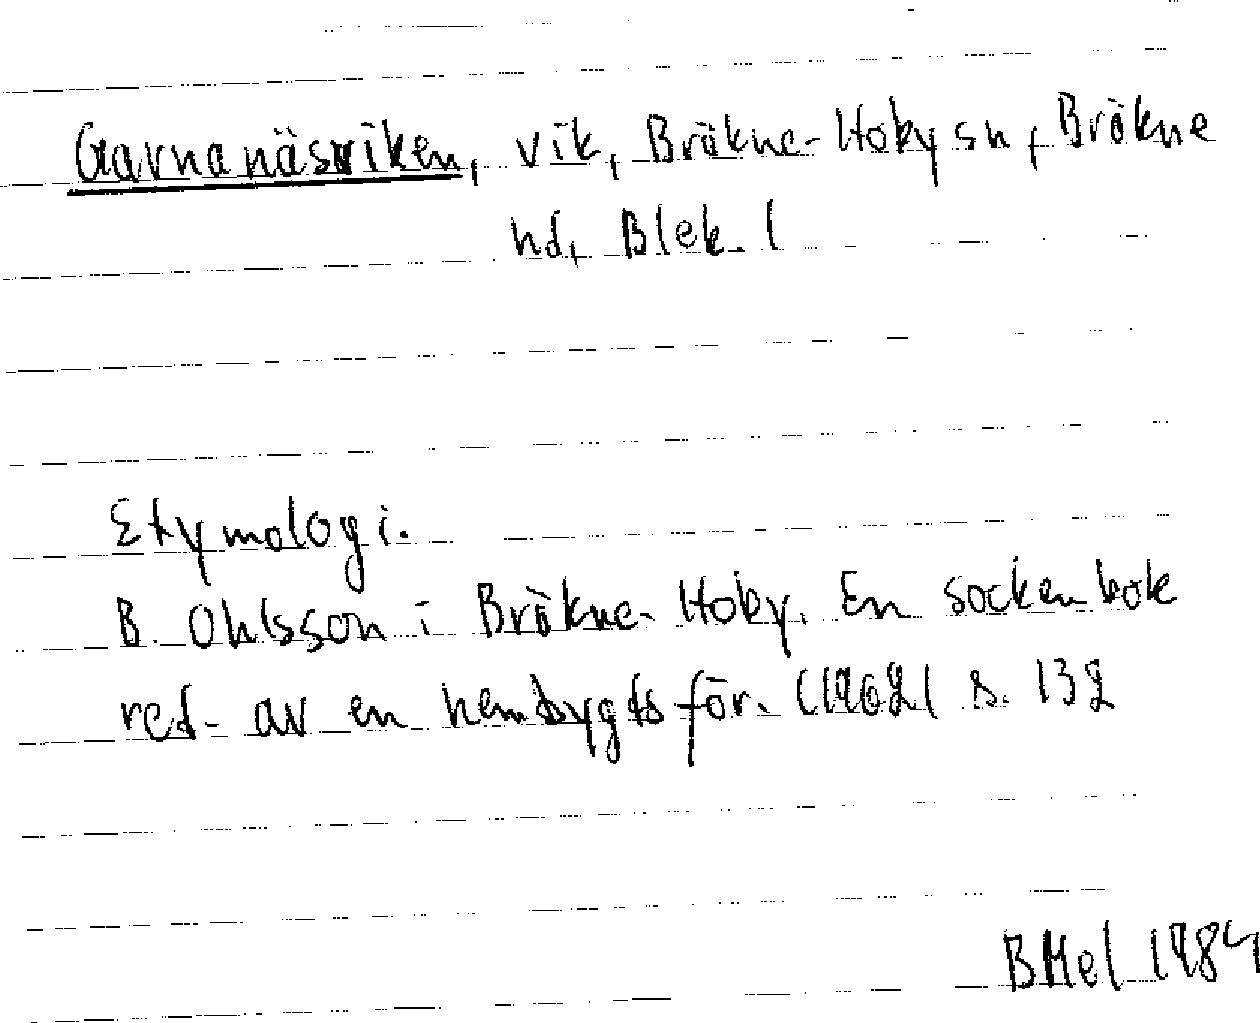 Garnanäsviken, vik, Bräkne-Hoby sn, Bräkne
hd, Blek. l
Etymologi.
B. Ohlsson i Bräkne-Hoby. En sockenbok
red. av en hembygdsför. (1962) s. 132
BHel 1984